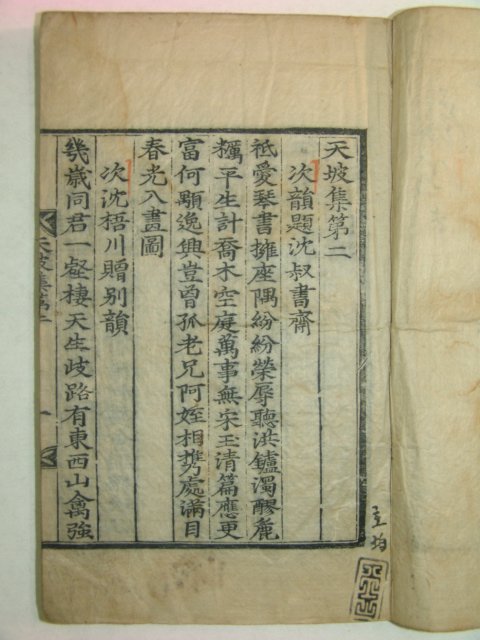 天坡集第二
次韻題沈叔書齋
祗愛琴書擁座隅紛紛榮辱聽洪鑪濁醪麁
糲平生計喬木空庭萬事無宋玉清篇應更
富何顒逸興豈曾孤老兄阿姪相携處滿目
春光入畫圖
次沈梧川贈別韻
幾歲同君一壑棲天生歧路有東西山禽強
天坡集第二
一